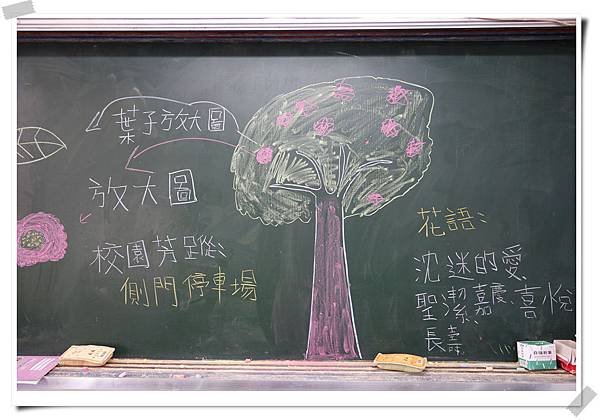 葉子放大圖
放大圖
校園芳蹤:
側門停車場
花語:
沈迷的愛
聖潔、嘉慶、喜悅
長壽